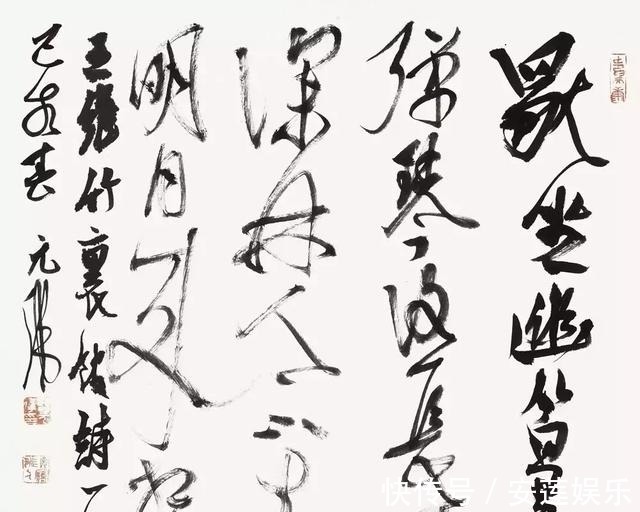 獨坐幽篁
彈琴復長
深林人不
明月來相
王維竹裏館詩一
己亥春 元
快传号/安莲娱乐